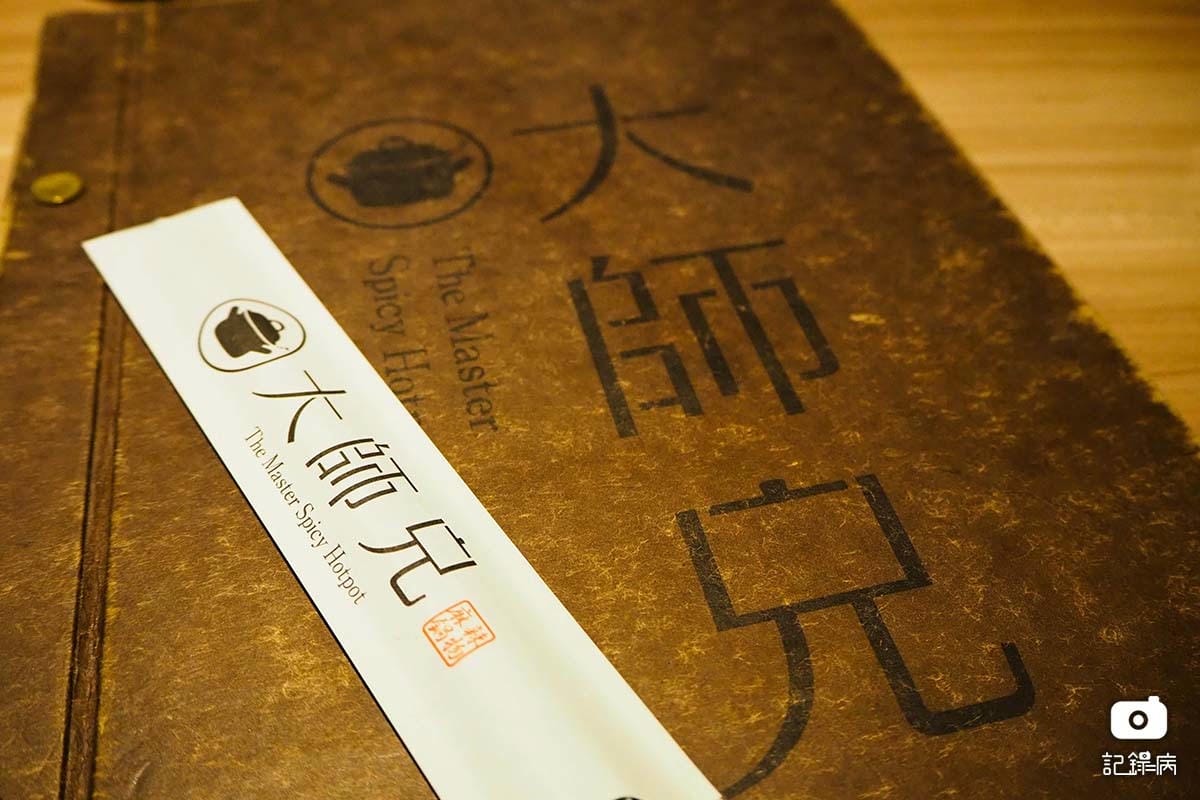 大師兄
The Master
Spicy Hot
大師兄
The Master Spicy Hotpot
麻辣
鍋物
記錄病